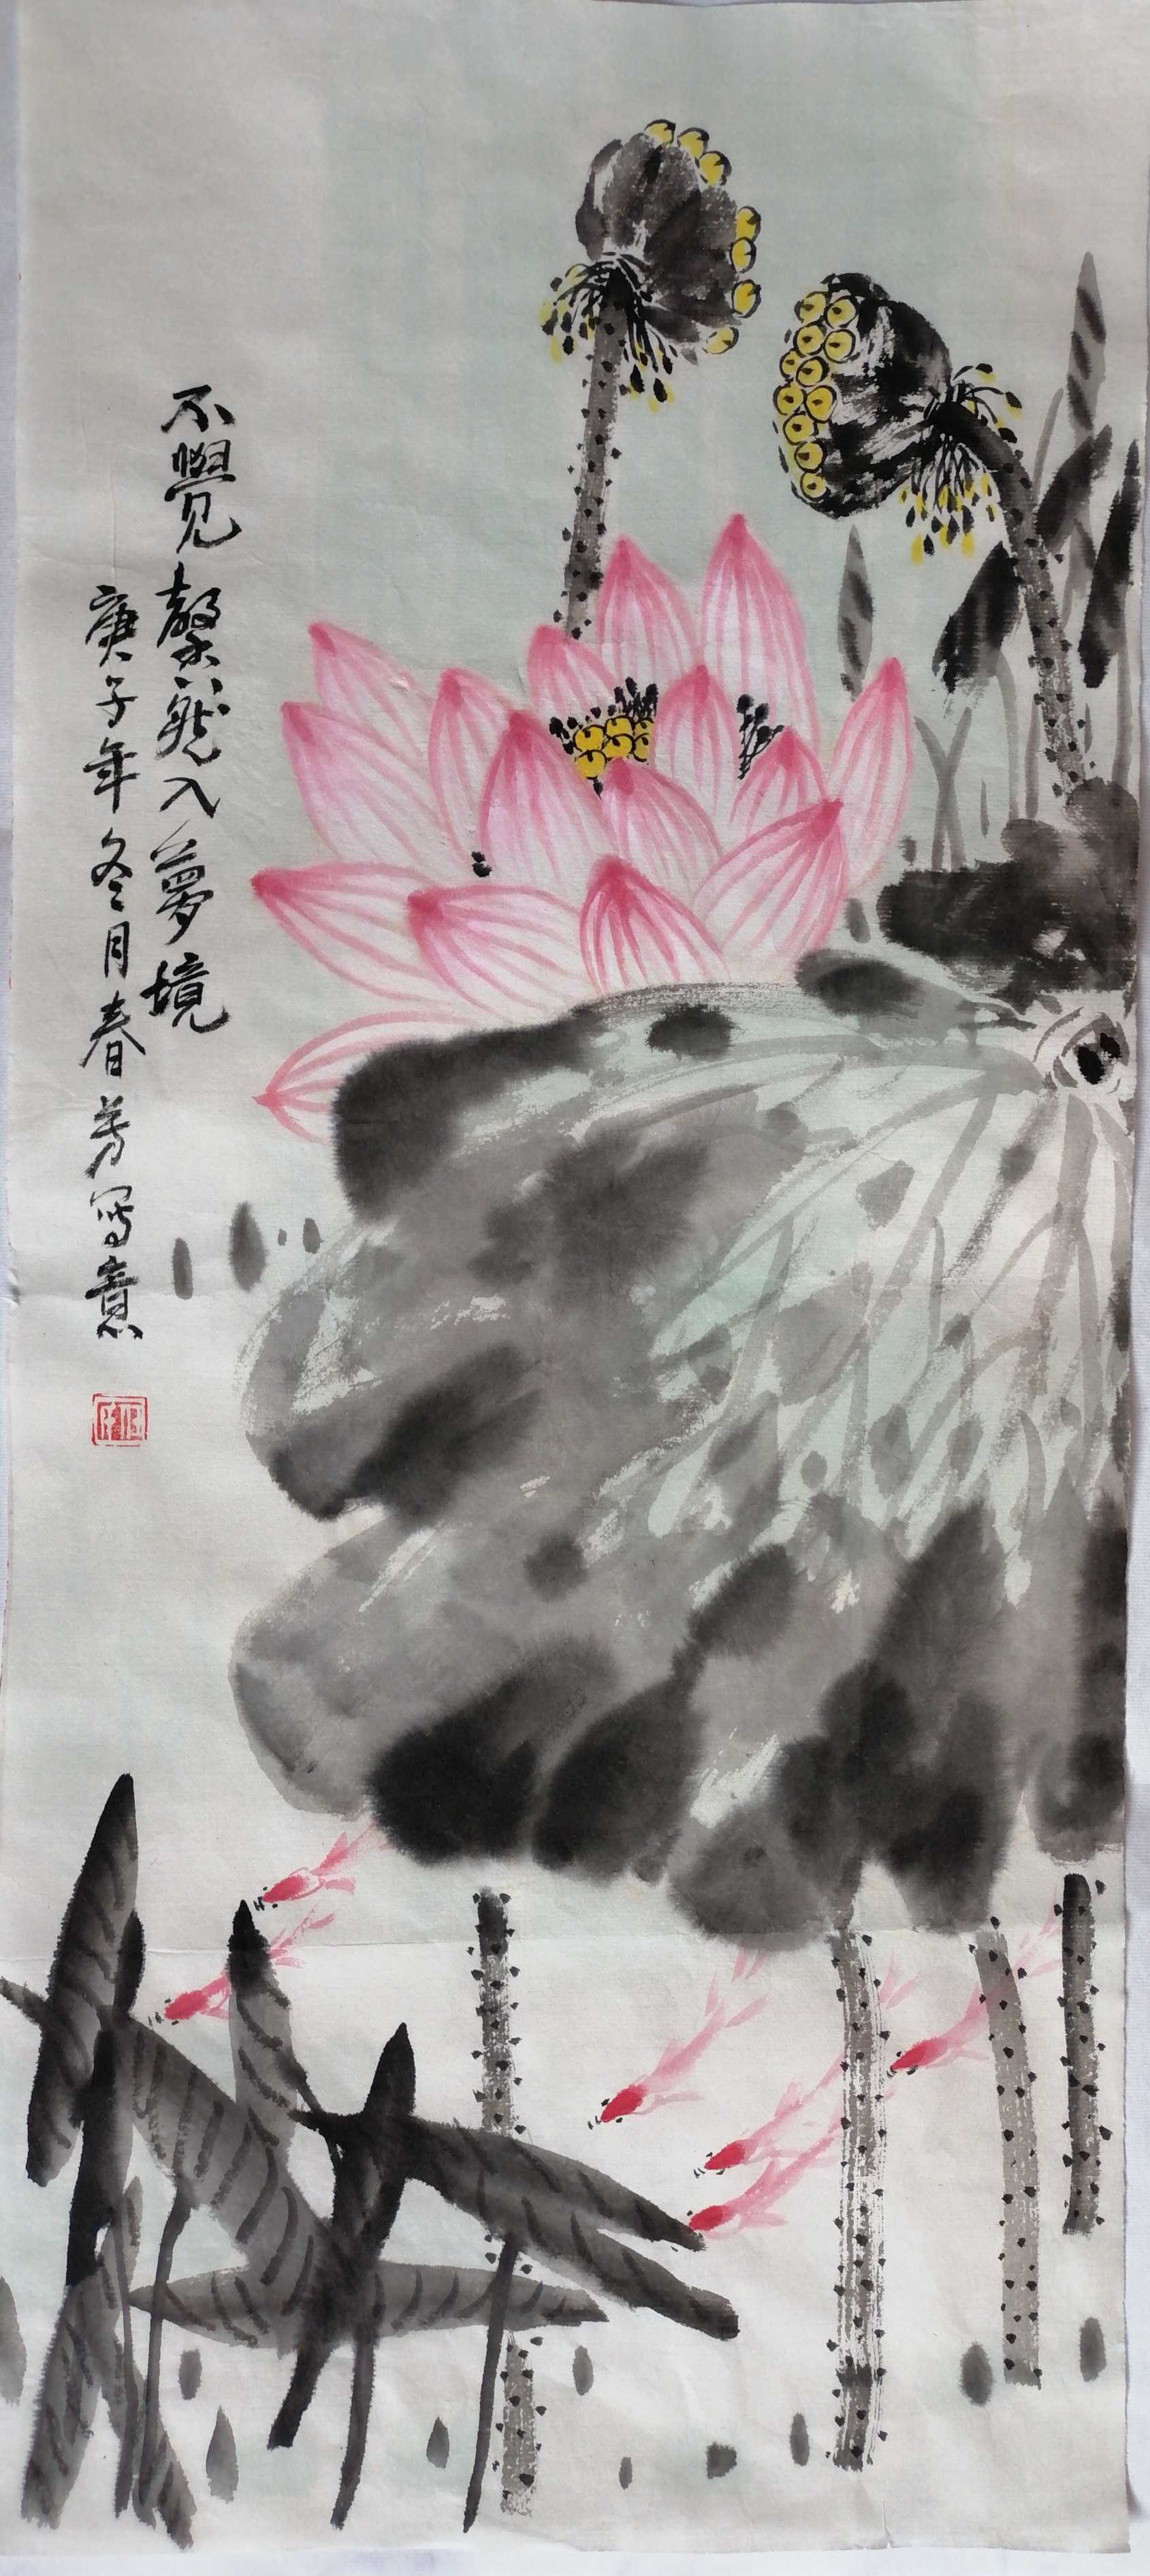 不覺馨然入夢境
庚子年冬月春芳寫意